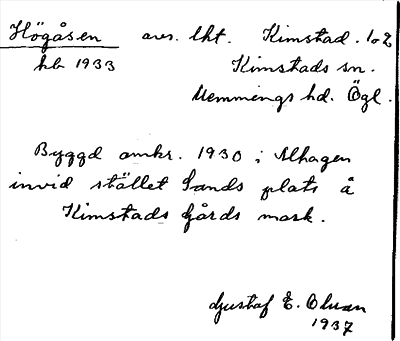 Högåsen avs. lht. Kimstad. 1o2
hb 1933 Kimstads sn.
Memmings hd. Ögl.
Byggd omkr. 1930 i Alhagen
invid stället Sands plats å
Kimstads gårds mark.
Gustaf E. Olsson
1937